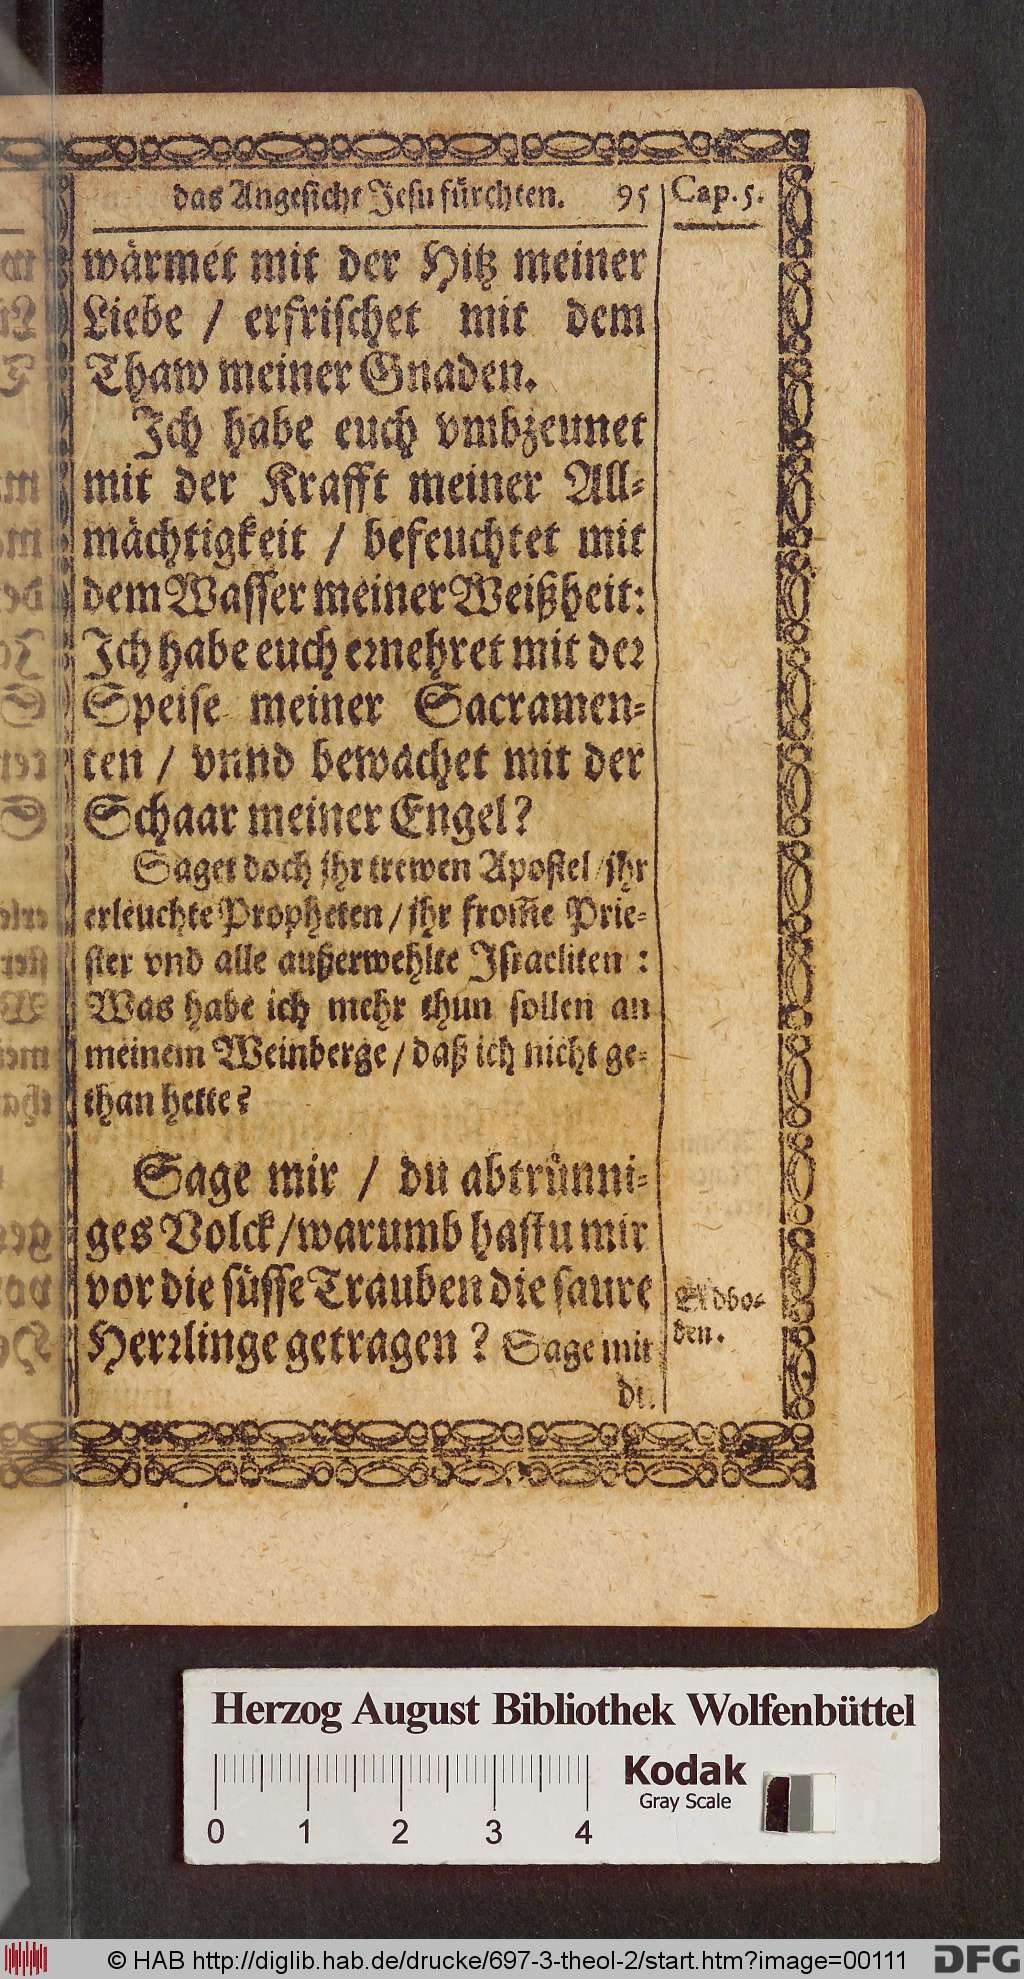 das Angesicht Jesu fürchten. 95 Cap. 5.
wärmet mit der Hitz meiner
Liebe / erfrischet mit dem
Thaw meiner Gnaden.
Ich habe euch vmbzeunet
mit der Krafft meiner All-
mächtigkeit / befeuchtet mit
dem Wasser meiner Weißheit:
Ich habe euch ernehret mit der
Speise meiner Sacramen-
ten / vnnd bewachet mit der
Schaar meiner Engel?
Saget doch jhr trewen Apostel / jhr
erleuchte Propheten / jhr from̃e Prie-
ster vnd alle außerwehlte Israeliten :
Was habe ich mehr thun sollen an
meinem Weinberge / daß ich nicht ge-
than hette?
Sage mir / du abtrünni-
ges Volck / warumb hastu mir
vor die süsse Trauben die saure
Herrlinge getragen ? Sage mir
du
Herzog August Bibliothek Wolfenbüttel
Kodak
Gray Scale
0 1 2 3 4
© HAB http://diglib.hab.de/drucke/697-3-theol-2/start.htm?image=00111 DFG